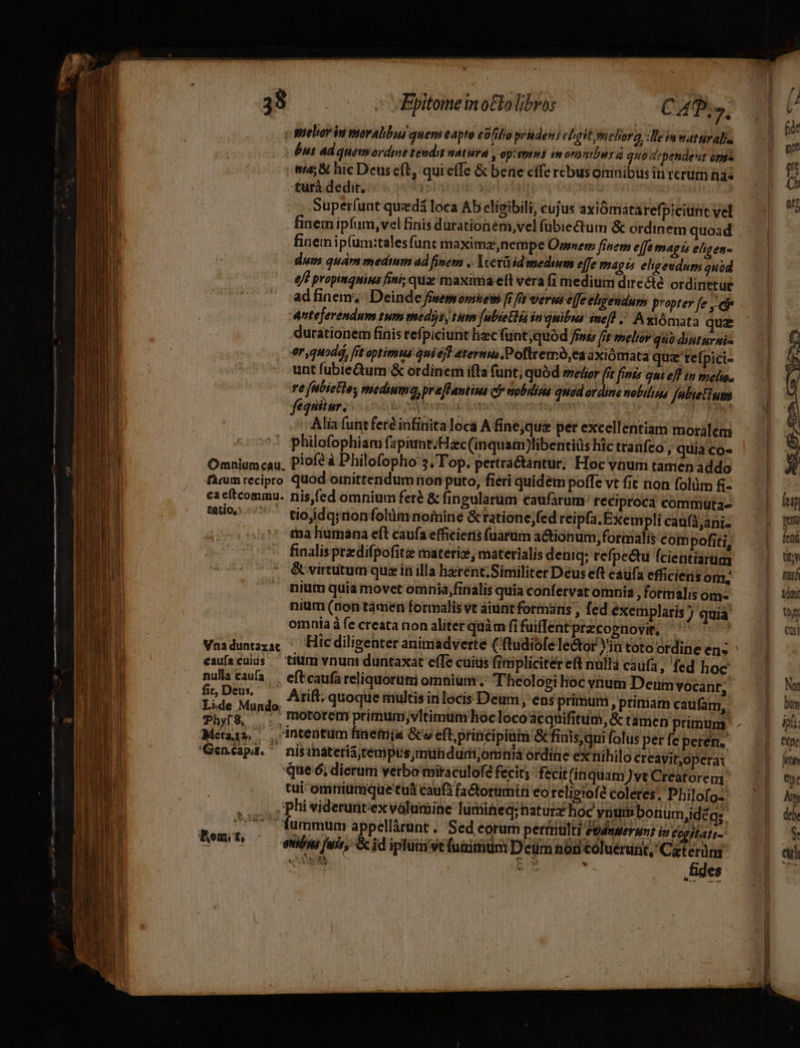 38 Epitome in octo libros CAP. 7.
melior in moralibus quem capto cōsilio prudens eligit, meliorq́, ille in naturalibus
ad quem ordine tendit natura, optimus in omnibus à quo dependent om-
nia; & hic Deus est, qui esse & bene esse rebus omnibus in rerum na-
turâ dedit.
Supersunt quædā loca Ab eligibili, cujus axiōmata respiciunt vel
finem ipsum, vel finis durationem, vel subiectum & ordinem quoad
finem ipsum: tales sunt maximæ, nempe Omnem finem esse magis eligen-
dum quàm medium ad finem. Iterū id medium esse magis eligendum quod
est propinquius fini; quæ maxima est vera si medium directè ordinetur
ad finem. Deinde finem omnem si sit verus esse eligendum propter se, &
anteferendum tum medijs, tum subiectis in quibus inest. Axiōmata quæ
durationem finis respiciunt hæc sunt, quòd finis sit melior quò diuturni-
or, quodq́, sit optimus qui est æternus. Postremò, ea axiōmata quæ respici-
unt subiectum & ordinem ista sunt, quòd melior sit finis qui est in melio-
re subiecto, mediumq, præstantius & nobilius quod ordine nobilius subiectum
sequitur.
Alia sunt ferè infinita loca A fine, quæ per excellentiam moralem
philosophiam sapiunt. Hæc (inquam) libentiùs hîc transeo, quia co-
piosè à Philosopho 3. Top. pertractantur. Hoc vnum tamen addo
quod omittendum non puto, fieri quidem posse vt sit non solùm fi-
nis, sed omnium ferè & singularum causarum reciproca commuta-
tio, idq; non solùm nomine & ratione, sed reipsa. Exempli causâ, ani-
ma humana est causa efficiens suarum actionum, formalis compositi,
finalis prædispositæ materiæ, materialis deniq; respectu scientiarum
& virtutum quæ in illa hærent. Similiter Deus est causa efficiens om-
nium quia movet omnia, finalis quia conservat omnia, formalis om-
nium (non tamen formalis vt aiunt formans, sed exemplaris) quia
omnia à se creata non aliter quàm si fuissent præcognovit.
Hic diligenter animadverte (studiose lector) in toto ordine en-
tium vnum duntaxat esse cuius simpliciter est nulla causa, sed hoc
est causa reliquorum omnium. Theologi hoc vnum Deum vocant,
Arist. quoque multis in locis Deum, ens primum, primam causam,
motorem primum, vltimum hoc loco acquisitum, & tamen primum
intentum finemque est, principium & finis, qui solus per se
nis materiâ, tempus, mundum, omnia ordine ex nihilo creavit, opera-
que 6. dierum verbo miraculosé fecit; fecit (inquam) vt Creatorem
tui omniumque tuâ causâ factorum in eo religiosè coleres. Philoso-
phi viderunt ex volumine lumineq; naturæ hoc vnum bonum, idēq;
summum appellârunt. Sed eorum permulti evanuerunt in cogitati-
onibus suis, & id ipsum vt summum Deum non coluerunt. Cæterùm
fides
Omnium cau-
sarum recipro
ca est commu-
tatio.
Vna duntaxat
causa cuius
nulla causa
sit, Deus.
Li. de Mundo.
Phys. 8.
Meta. 12.
Gen. cap. 1.
Rom. 1.